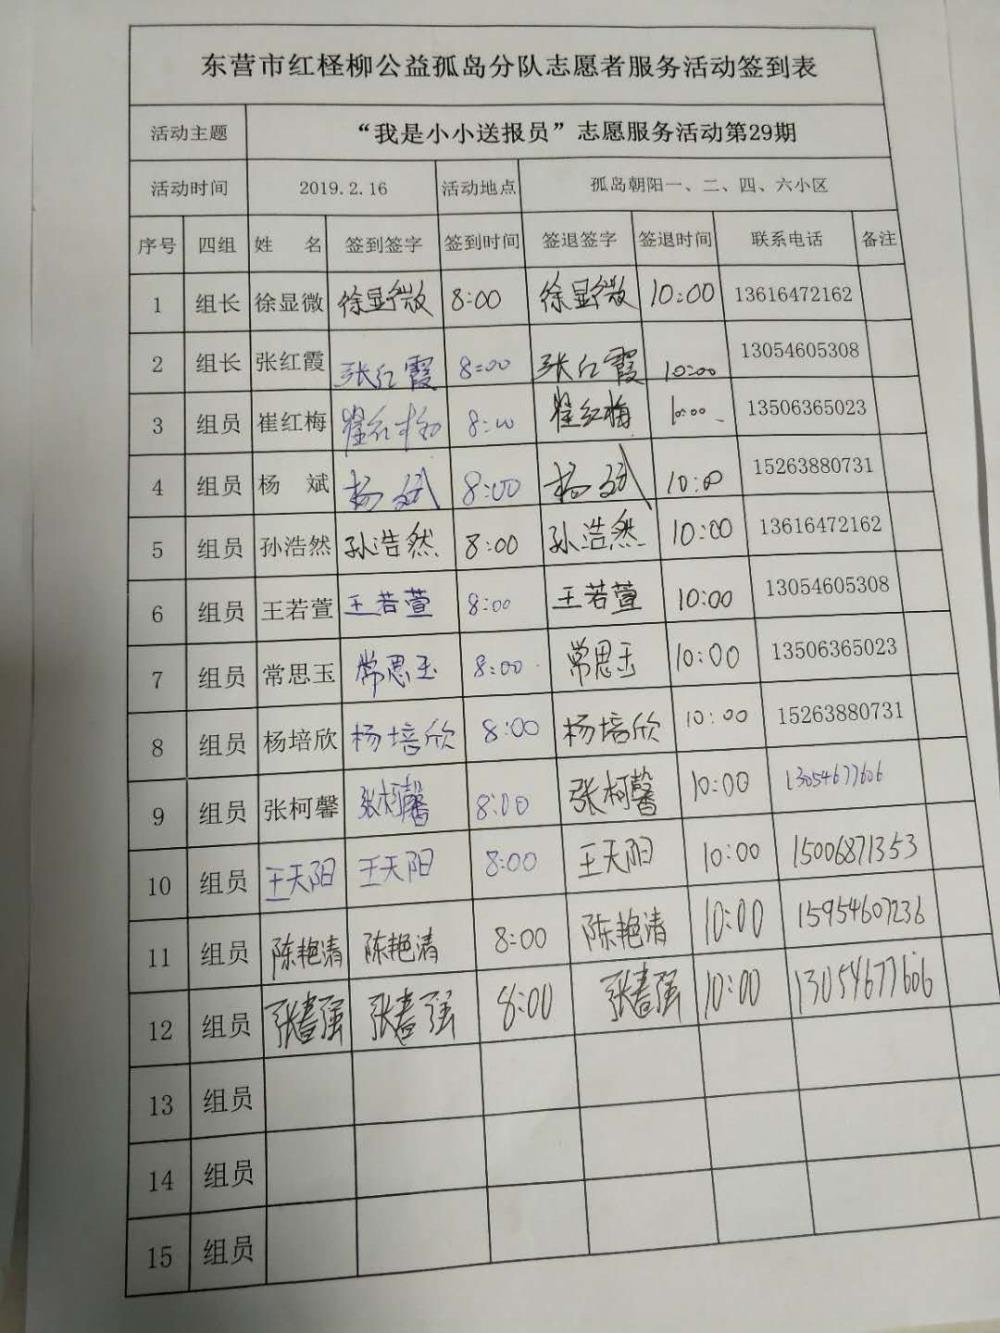 东营市红柽柳公益孤岛分队志愿者服务活动签到表
活动主题 “我是小小送报员”志愿服务活动第29期
活动时间 2019.2.16 活动地点 孤岛朝阳一、二、四、六小区
序号 四组 姓 名 签到签字 签到时间 签退签字 签退时间 联系电话 备注
1 组长 徐显微 徐显微 8:00 徐显微 10:00 13616472162
2 组长 张红霞 张红霞 8:00 张红霞 10:00 13054605308
3 组员 崔红梅 崔红梅 8:00 崔红梅 10:00 13506365023
4 组员 杨 斌 杨斌 8:00 杨斌 10:00 15263880731
5 组员 孙浩然 孙浩然 8:00 孙浩然 10:00 13616472162
6 组员 王若萱 王若萱 8:00 王若萱 10:00 13054605308
7 组员 常思玉 常思玉 8:00 常思玉 10:00 13506365023
8 组员 杨培欣 杨培欣 8:00 杨培欣 10:00 15263880731
9 组员 张柯馨 张柯馨 8:00 张柯馨 10:00 13054677606
10 组员 王天阳 王天阳 8:00 王天阳 10:00 15006871353
11 组员 陈艳清 陈艳清 8:00 陈艳清 10:00 15954607236
12 组员 张春强 张春强 8:00 张春强 10:00 13054677606
13 组员
14 组员
15 组员